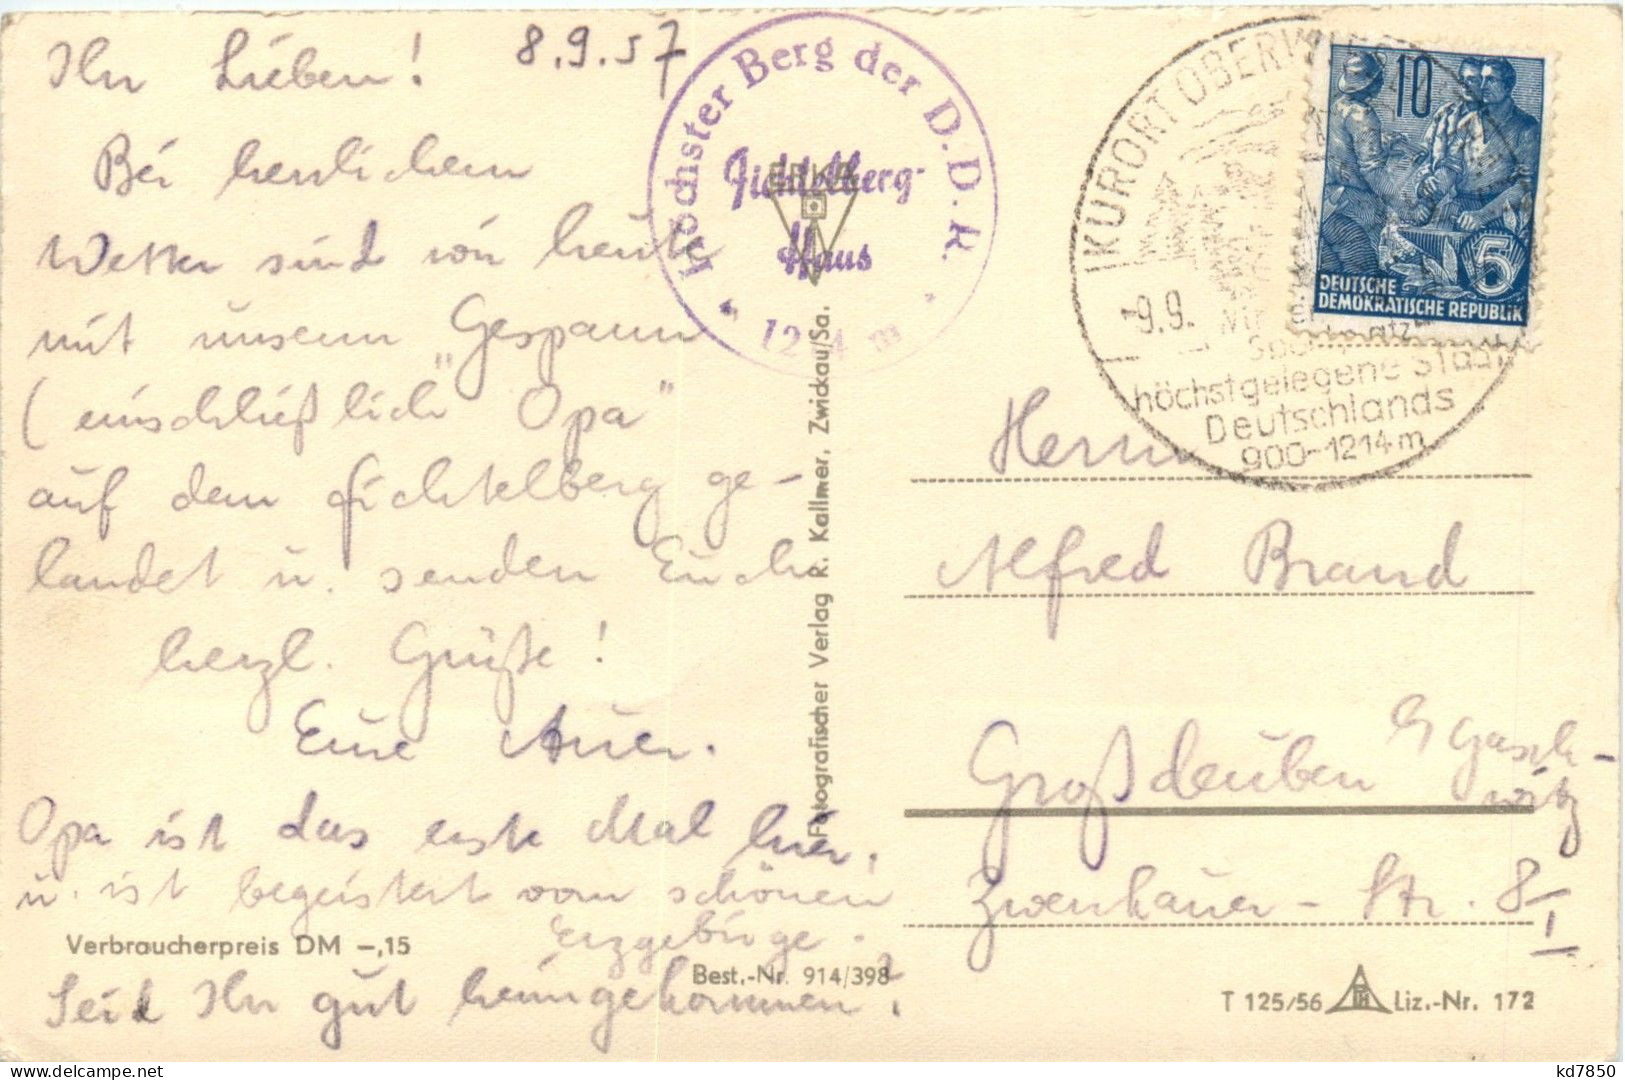 Ihr Lieben! 8.9.57
Bei herrlichem
Wetter sind wir heute
mit unserm "Gespann
(einschließlich Opa"
auf dem Fichtelberg ge-
landet u. senden Euch
herzl. Grüße!
Eure Auer.
Opa ist das erste Mal hier.
u. ist begeistert vom schönen
Erzgebirge.
Seid Ihr gut heimgekommen?
Verbraucherpreis DM –,15
Best.-Nr. 914/398
Höchster Berg der D.D.R.
Fichtelberg-
Haus
ERKA
Fotografischer Verlag R. Kallmer, Zwickau/Sa.
KURORT OBERWIES
-9.9.
höchstgelegene Stadt
Deutschlands
900-1214m
10
5
DEUTSCHE
DEMOKRATISCHE REPUBLIK
Herrn
Alfred Brand
Großdeuben Gasch-
witz
Zwenkauer-Str. 8 I
T 125/56 Liz.-Nr. 172
kd7850